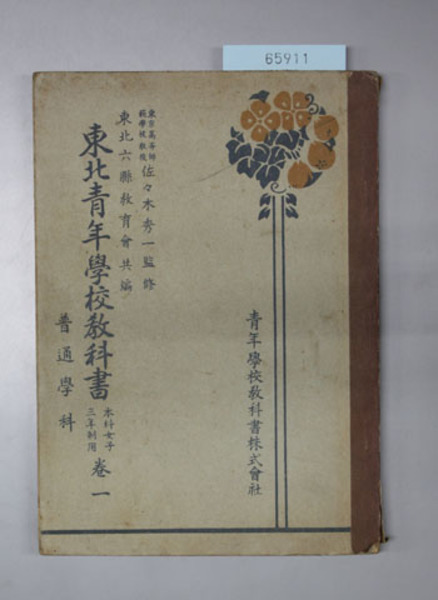 65911
東京高等師
範學校教授
佐々木秀一監修
東北六縣教育會共編
東北青年學校教科書
本科女子
三年制用
卷一
普通學科
青年學校教科書株式會社